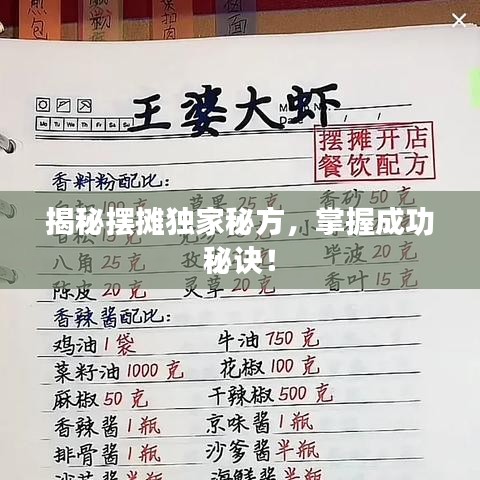 王婆大虾
摆摊开店
餐饮配方
香料粉配比：
香砂50克
揭秘摆摊独家秘方，掌握成功
秘诀！
八角25克
毕波20克
陈皮20克 灵草20克 香叶15克
香辣酱配比：
鸡油1袋 牛油750克
菜籽油1000克 花椒100克
麻椒50克 干辣椒500克
香辣酱1瓶 京味酱1瓶
排骨酱1瓶 沙爹酱半瓶
海鲜酱半瓶